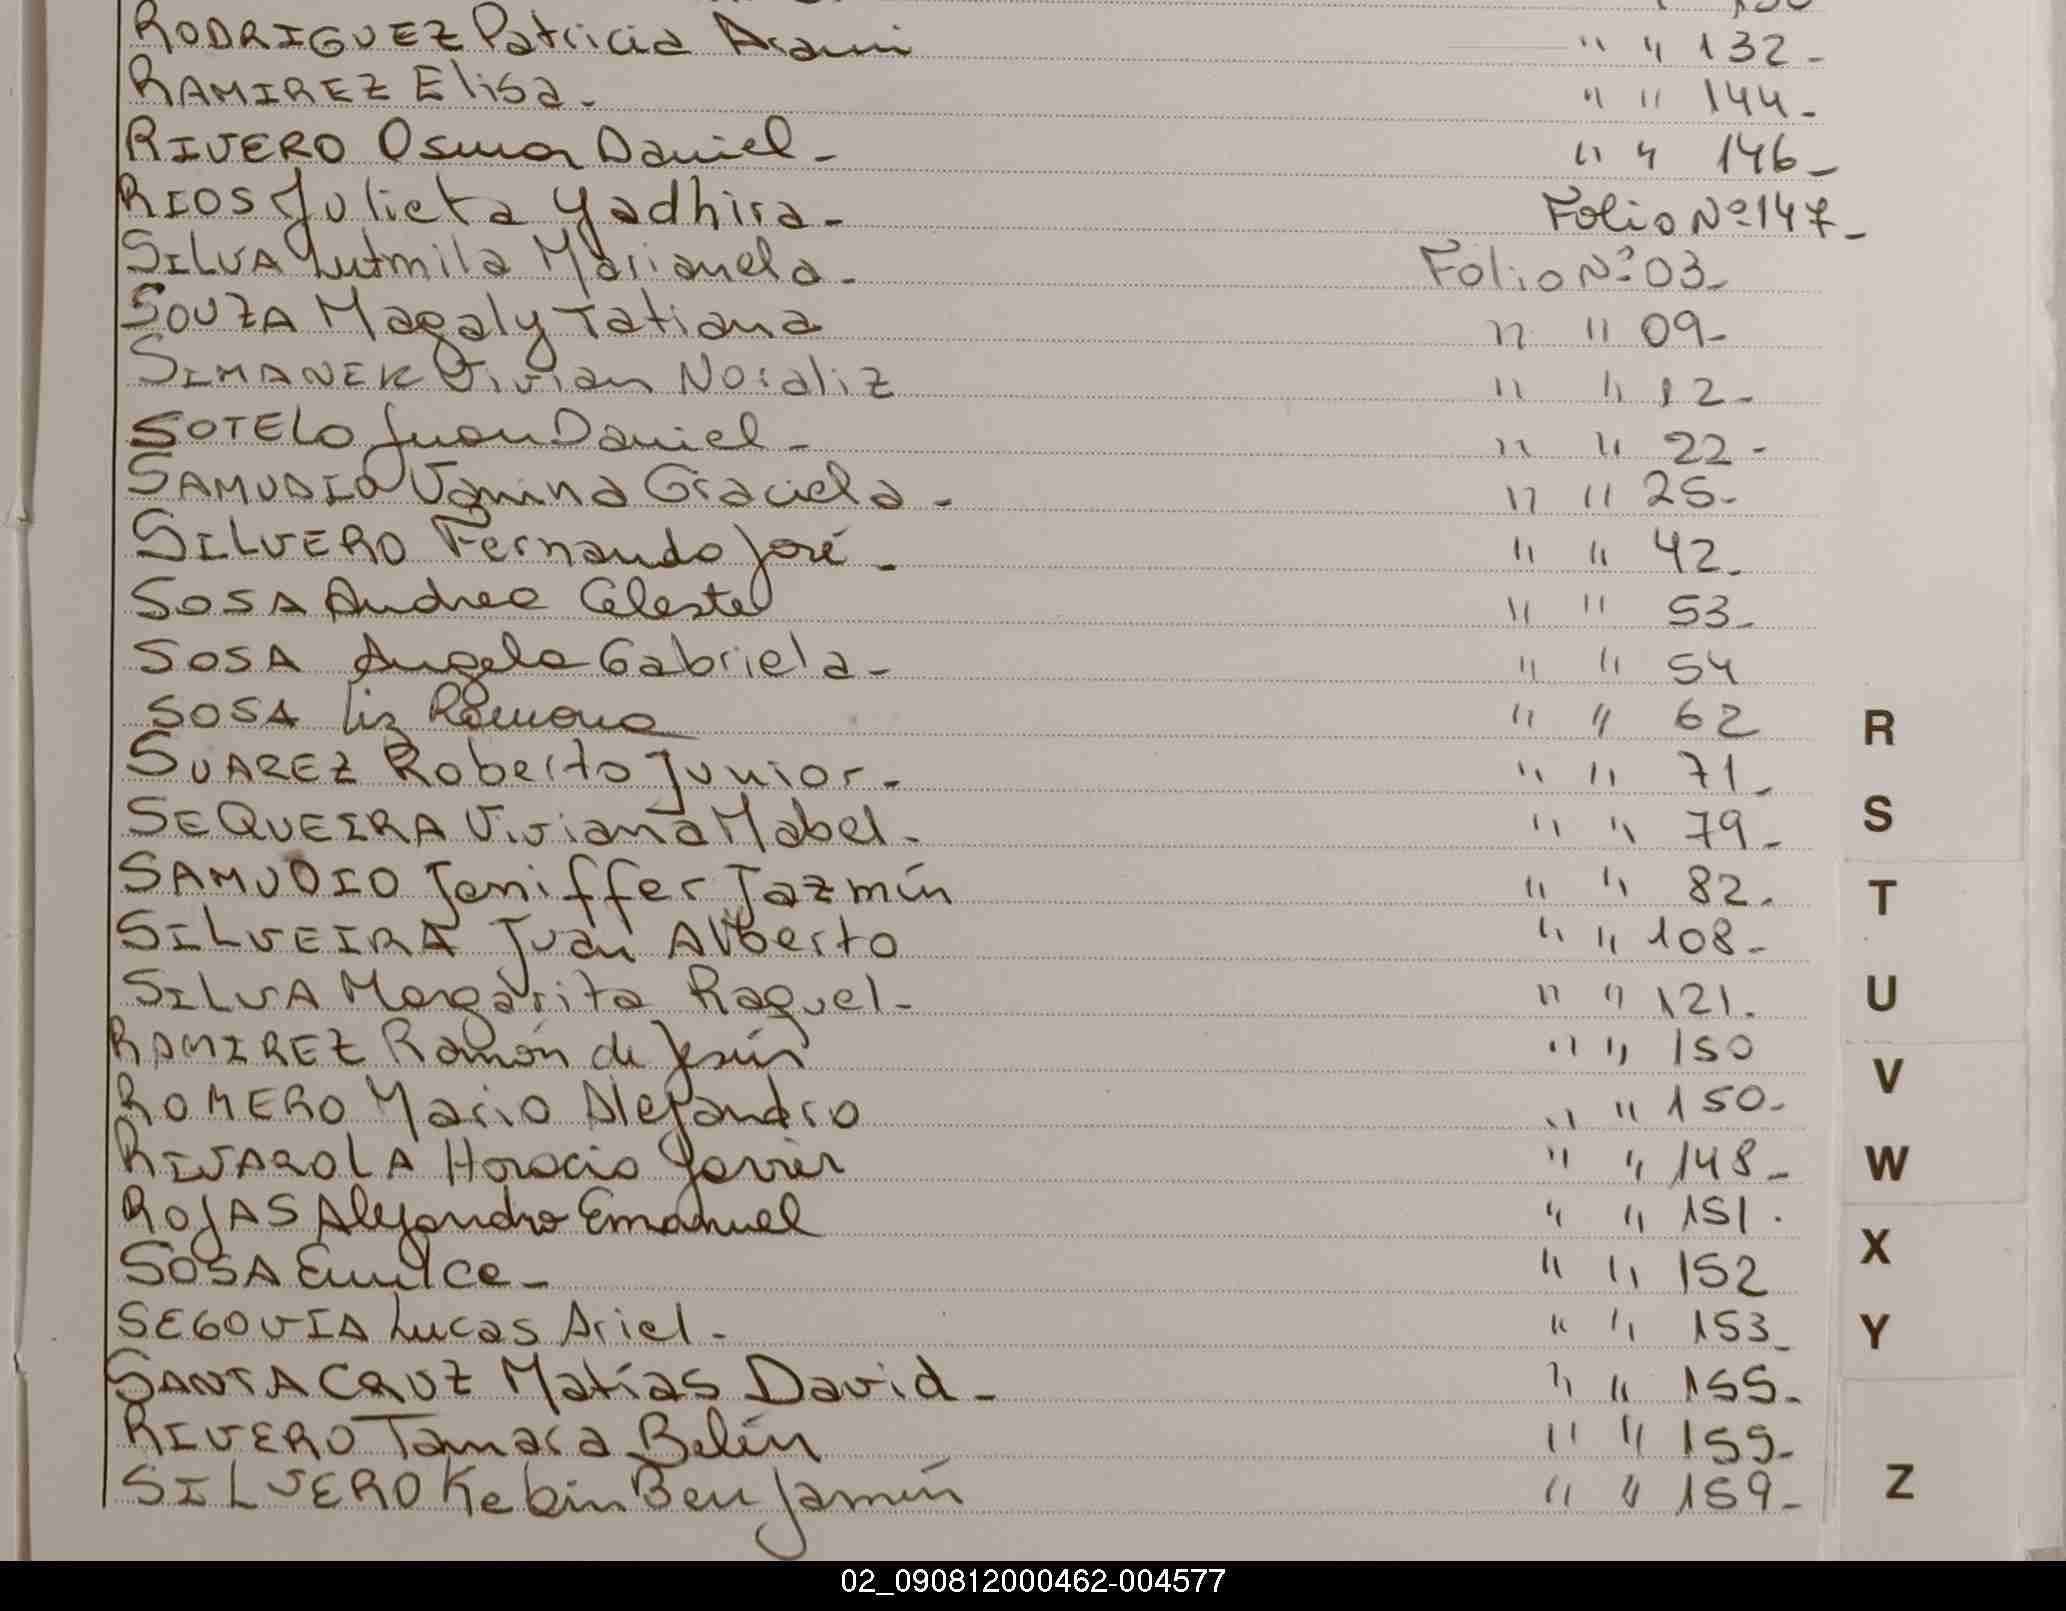 RODRIGUEZ Patricia Araui " " 132-
RAMIREZ Elisa- " " 144-
RIVERO Osmar Daniel- " " 146-
RIOS Julieta Yadhira- Folio Nº 147-
SILVA Lutmila Marianela- Folio Nº 03-
SOUZA Magaly Tatiana " " 09-
SIMANEK Vivian Noraliz " " 12-
SOTELO Juan Daniel- " " 22-
SAMUDIO Vanina Graciela- " " 25-
SILVERO Fernando José- " " 42-
SOSA Andrea Celeste " " 53-
SOSA Angela Gabriela- " " 54
SOSA Liz Ramona " " 62
SUAREZ Roberto Junior- " " 71-
SEQUEIRA Viviana Mabel- " " 79-
SAMUDIO Jeniffer Jazmín " " 82.
SILVEIRA Juan Alberto " " 108-
SILVA Margarita Raquel- " " 121.
RAMIREZ Ramón de Jesús " " 150
ROMERO Mario Alejandro " " 150-
RIVAROLA Horacio Javier " " 148-
ROJAS Alejandro Emanuel " " 151.
SOSA Emilce- " " 152
SEGOVIA Lucas Ariel- " " 153-
SANTA CRUZ Matías David- " " 155-
RIVERO Tamara Belén " " 159-
SILVERO Kebin Benjamín " " 159-
R
S
T
U
V
W
X
Y
Z
02_090812000462-004577